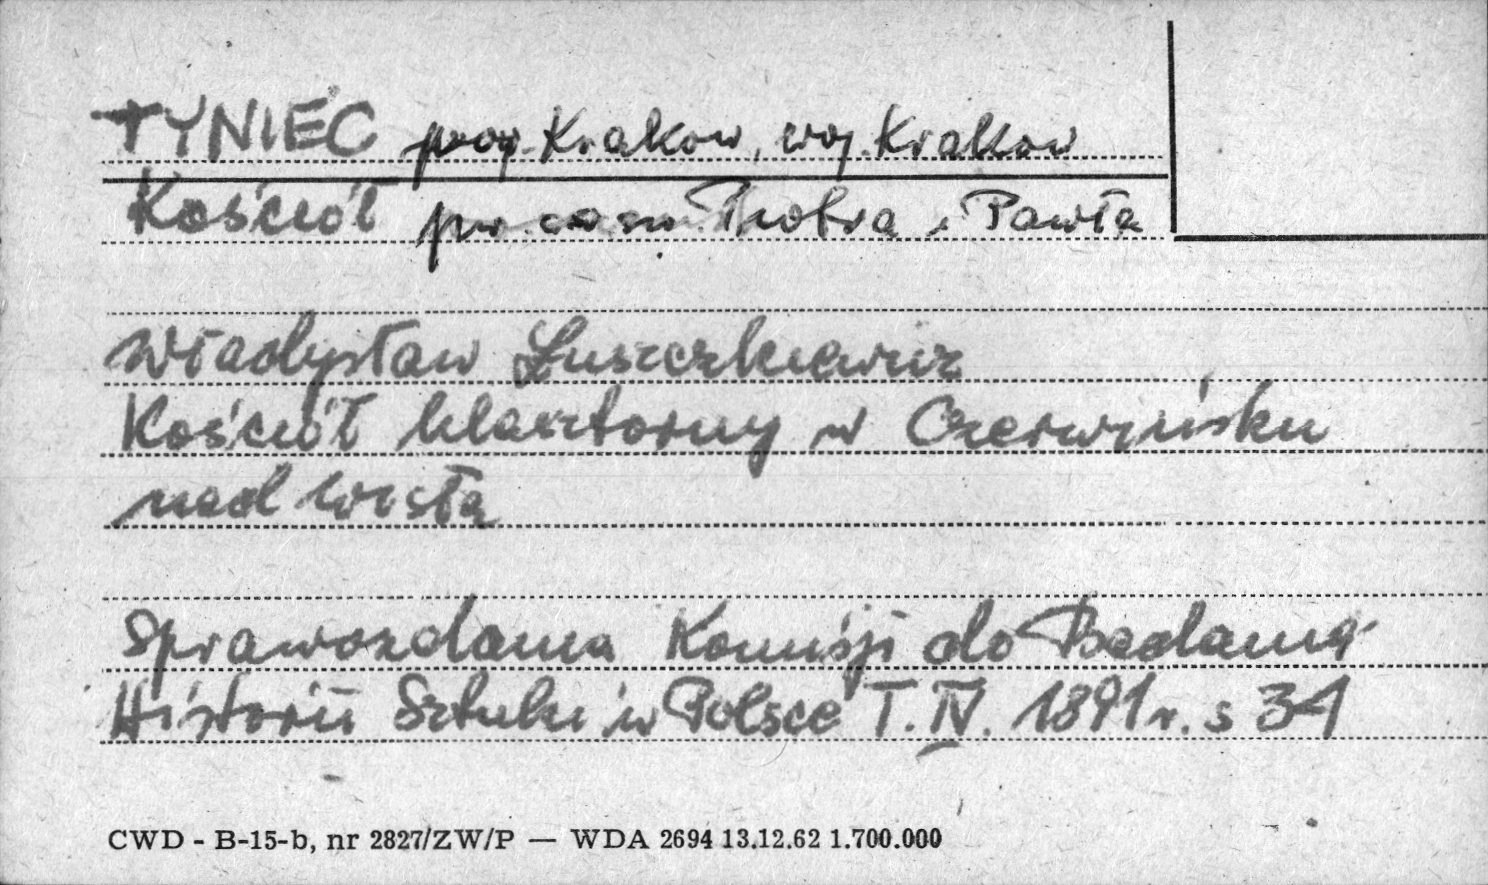 TYNIEC pow. Krakow, woj. Krakow
Kościół pw. św. Piotra i Pawła
Władysław Łuszczkiewicz
Kościół klasztorny w Czerwińsku
nad Wisłą
Sprawozdania Komisji do Badania
Historii Sztuki w Polsce T. IV. 1891 r. s 34
CWD - B-15-b, nr 2827/ZW/P — WDA 2694 13.12.62 1.700.000